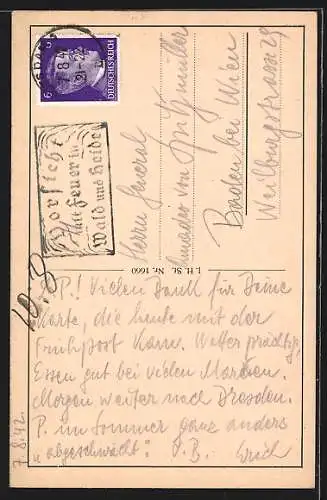 7 8 42
21-22
6
6
DEUTSCHES REICH
Vorsicht
mit Feuer in
Wald und Heide
Herrn General
von
Baden bei Wien
Weilburgstrasse 29
J. H. St. Nr. 1660
10.3
L.P.! Vielen Dank für Deine
Karte, die heute mit der
Frühpost kam. Wetter prächtig,
Essen gut bei vielen Marken.
Morgen weiter nach Dresden.
P. im Sommer ganz anders
u. abgeschwächt. V.B. Erich
7.8.42.